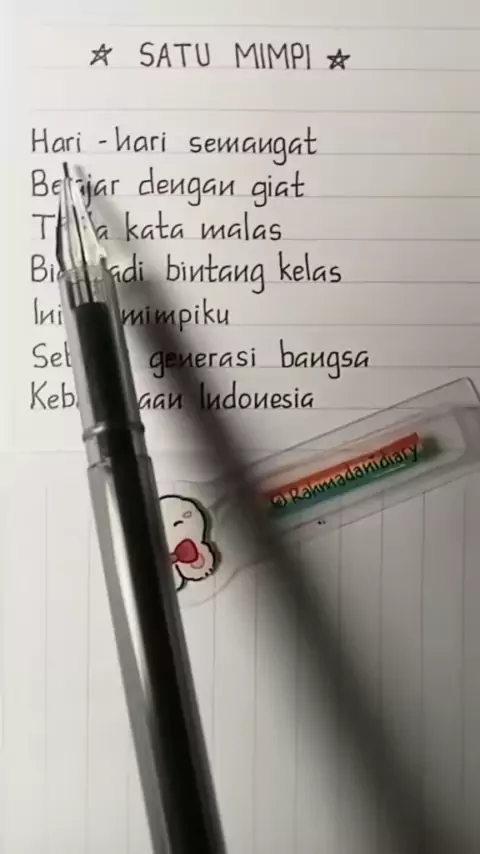 ☆ SATU MIMPI ☆
Hari - hari semangat
dengan giat
kata malas
bintang kelas
mimpiku
generasi bangsa
Indonesia
@Rahmadanidiary